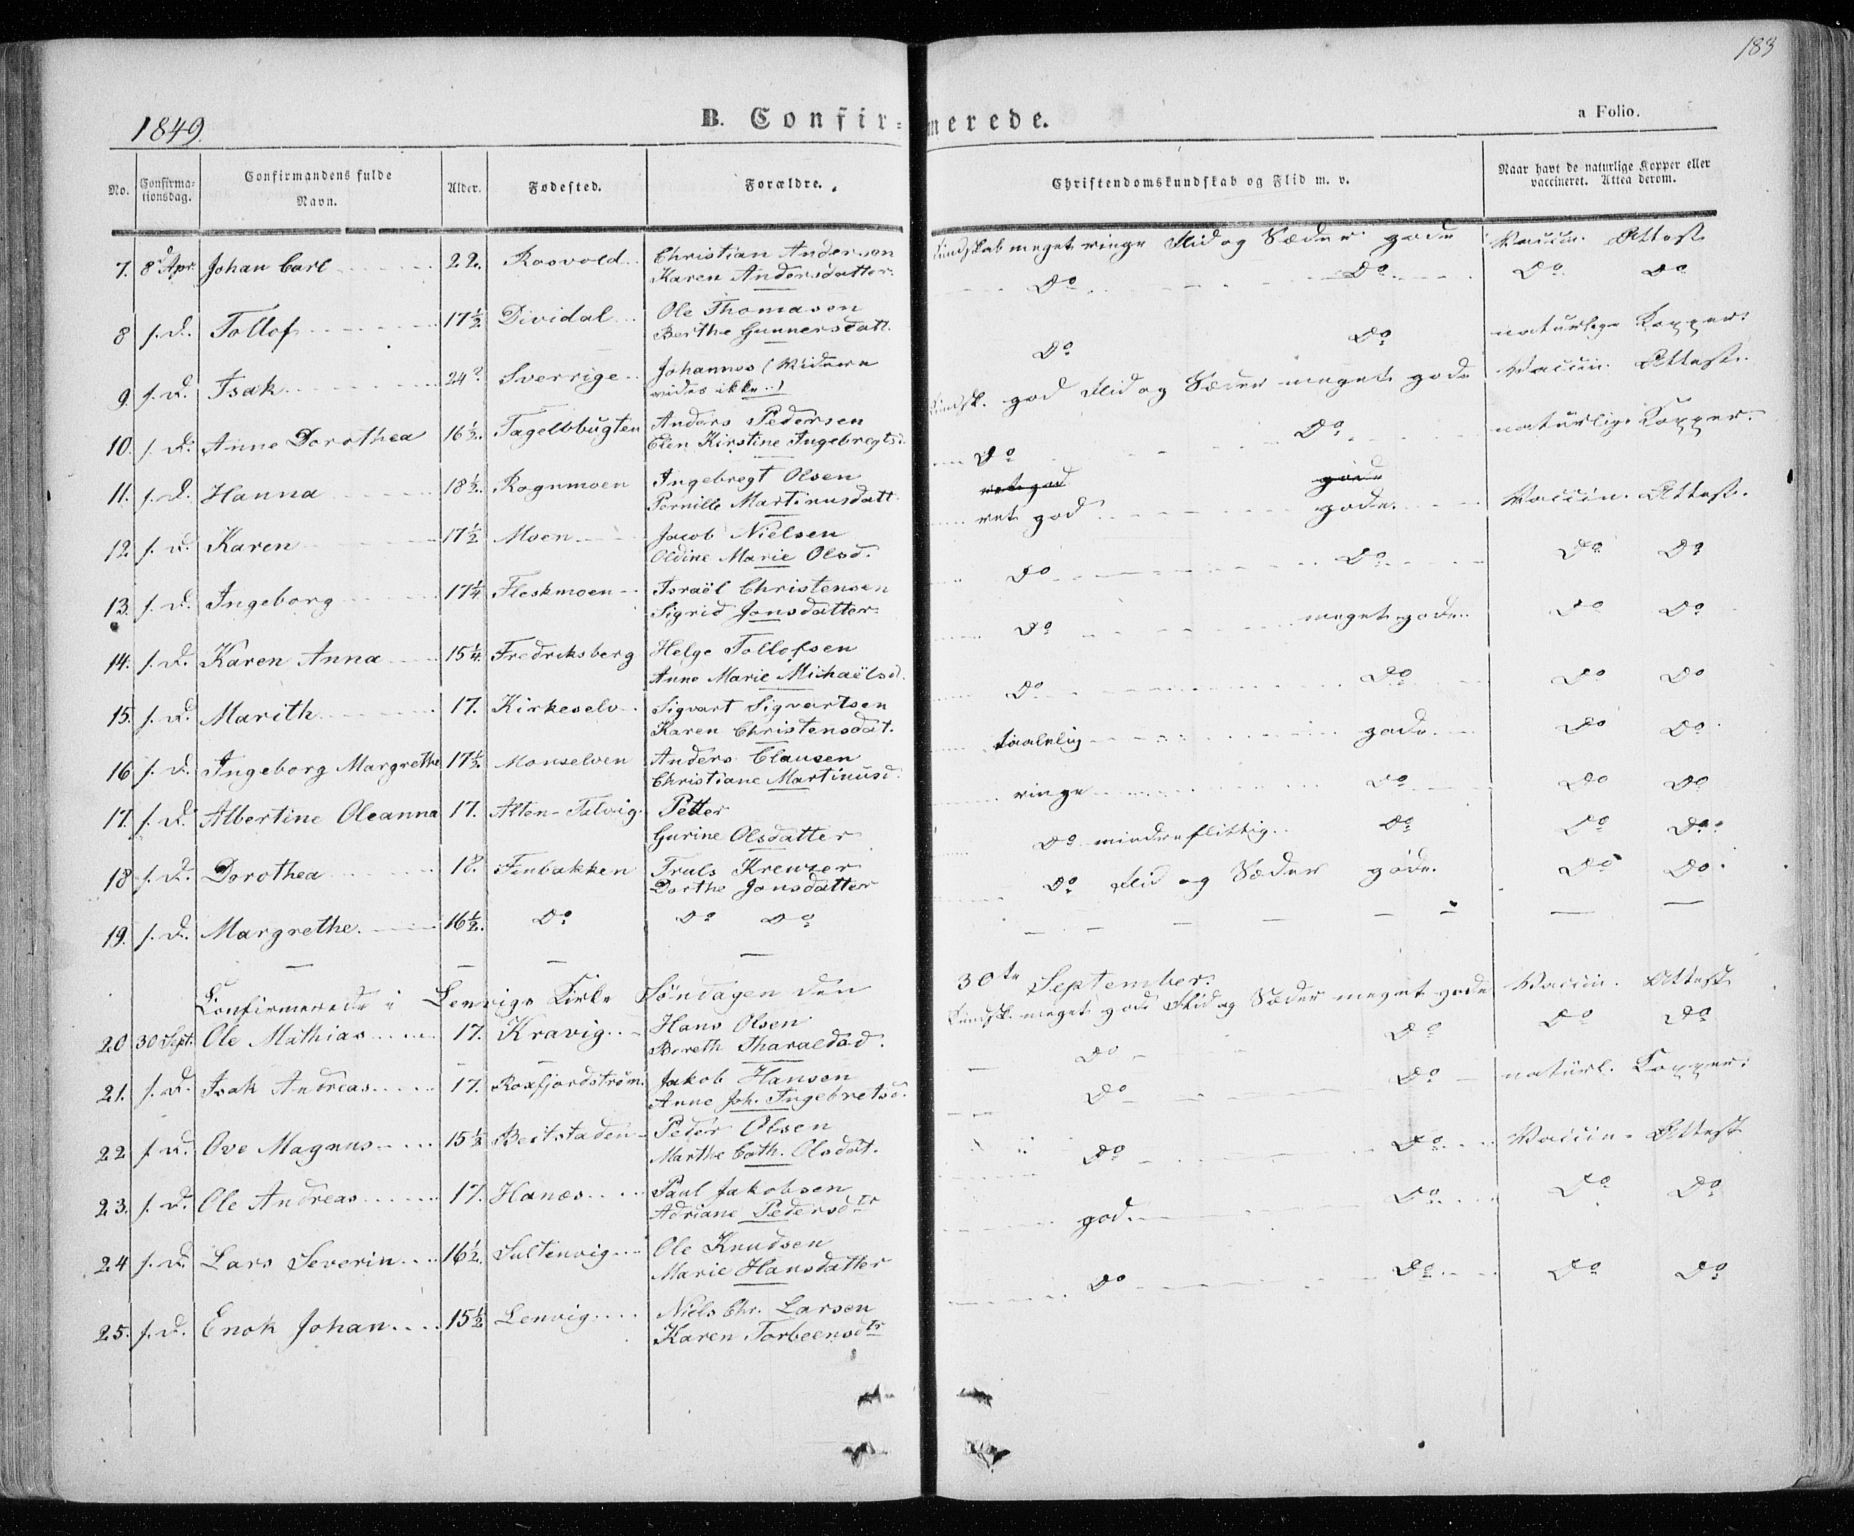 183
1849.
B. Confir=merede.
a Folio.
No.
Confirma-
tionsdag.
Confirmandens fulde
Navn.
Alder.
Fødested.
Forældre.
Christendomskundskab og Flid m. v.
Naar havt de naturlige Kopper eller
vaccineret. Attea derom.
7. 8d Apr. Johan Carl 22. Rosvold Christian Andersen Kundskab meget ringe Flid og Sæder gode Vaccin. Attest
Karen Andersdatter
8 s. D. Tollof 17½ Dividal Ole Thomasen Do Do Do Do
Berthe Gunnersdatt.
9. s. D. Isak 24? Sverrige Johannes (Videre Do Do naturlige Kopper.
vides ikke)
10. s. D. Anne Dorothea 16½. Tagelvbugten Anders Pedersen Kundsk. god Flid og Sæder meget gode Vaccin. Attest.
Elen Kirstine Ingebregtsd.
11. s. D. Hanna 18½. Rognmoen Ingebregt Olsen Do Do naturlige Kopper
Pernille Martinusdatt.
ret god gode
12. s. D. Karen 17½ Moen Jacob Nielsen ret god gode. Vaccin. Attest.
Oldine Marie Olsd.
13. s. D. Ingeborg 17¼ Fleskmoen Israël Christensen Do Do Do Do
Sigrid Jonsdatter
14. s. D. Karen Anna 15¼. Fredriksberg Helge Tollofsen Do meget gode Do Do
Anne Marie Michaëlsd.
15. s. D. Marith 17. Kirkeselv Sigvart Sigvartsen Do Do Do Do
Karen Christensdat.
16 s. D. Ingeborg Margrethe 17½. Monselven Anders Clausen taalelig gode. Do Do
Christiane Martinusd.
17. s. D. Albertine Oleanna 17. Alten-Talvig Petter ringe Do Do Do
Gurine Olsdatter
18 s. D. Dorothea 18. Finbakken Truls Kreuzer Do mindre flittig Do Do Do
Dorthe Jonsdatter
19. s. D. Margrethe 16½. Do Do Do Do Flid og Sæder gode. Do Do
Confirmerede i Lenvigs Kirke Søndagen den 30te September.
20 30 Sept. Ole Mathias 17. Kravig Hans Olsen Kundsk. meget god Flid og Sæder meget gode Vaccin. Attest
Bereth Tharaldsd.
21. s. D. Isak Andreas 17. Roxfjordstrøm. Jakob Hansen Do Do Do Do
Anne Joh. Ingebretsd.
22 s. D. Ove Magnus 15½ Bertstaden Peder Olsen Do Do naturl. Kopper.
Marthe Cath. Olsdat.
23. s. D. Ole Andreas 17. Hanæs Paul Jakobsen Do Do Vaccin. Attest
Adriane Pedersdtr
24 s. D. Lars Severin 16½ Sultinvig Ole Knudsen god. Do Do Do
Marie Hansdatter
25. s. D. Enok Johan 15½ Lenvig Niels Chr. Larsen Do Do Do Do
Karen Torbeensdtr